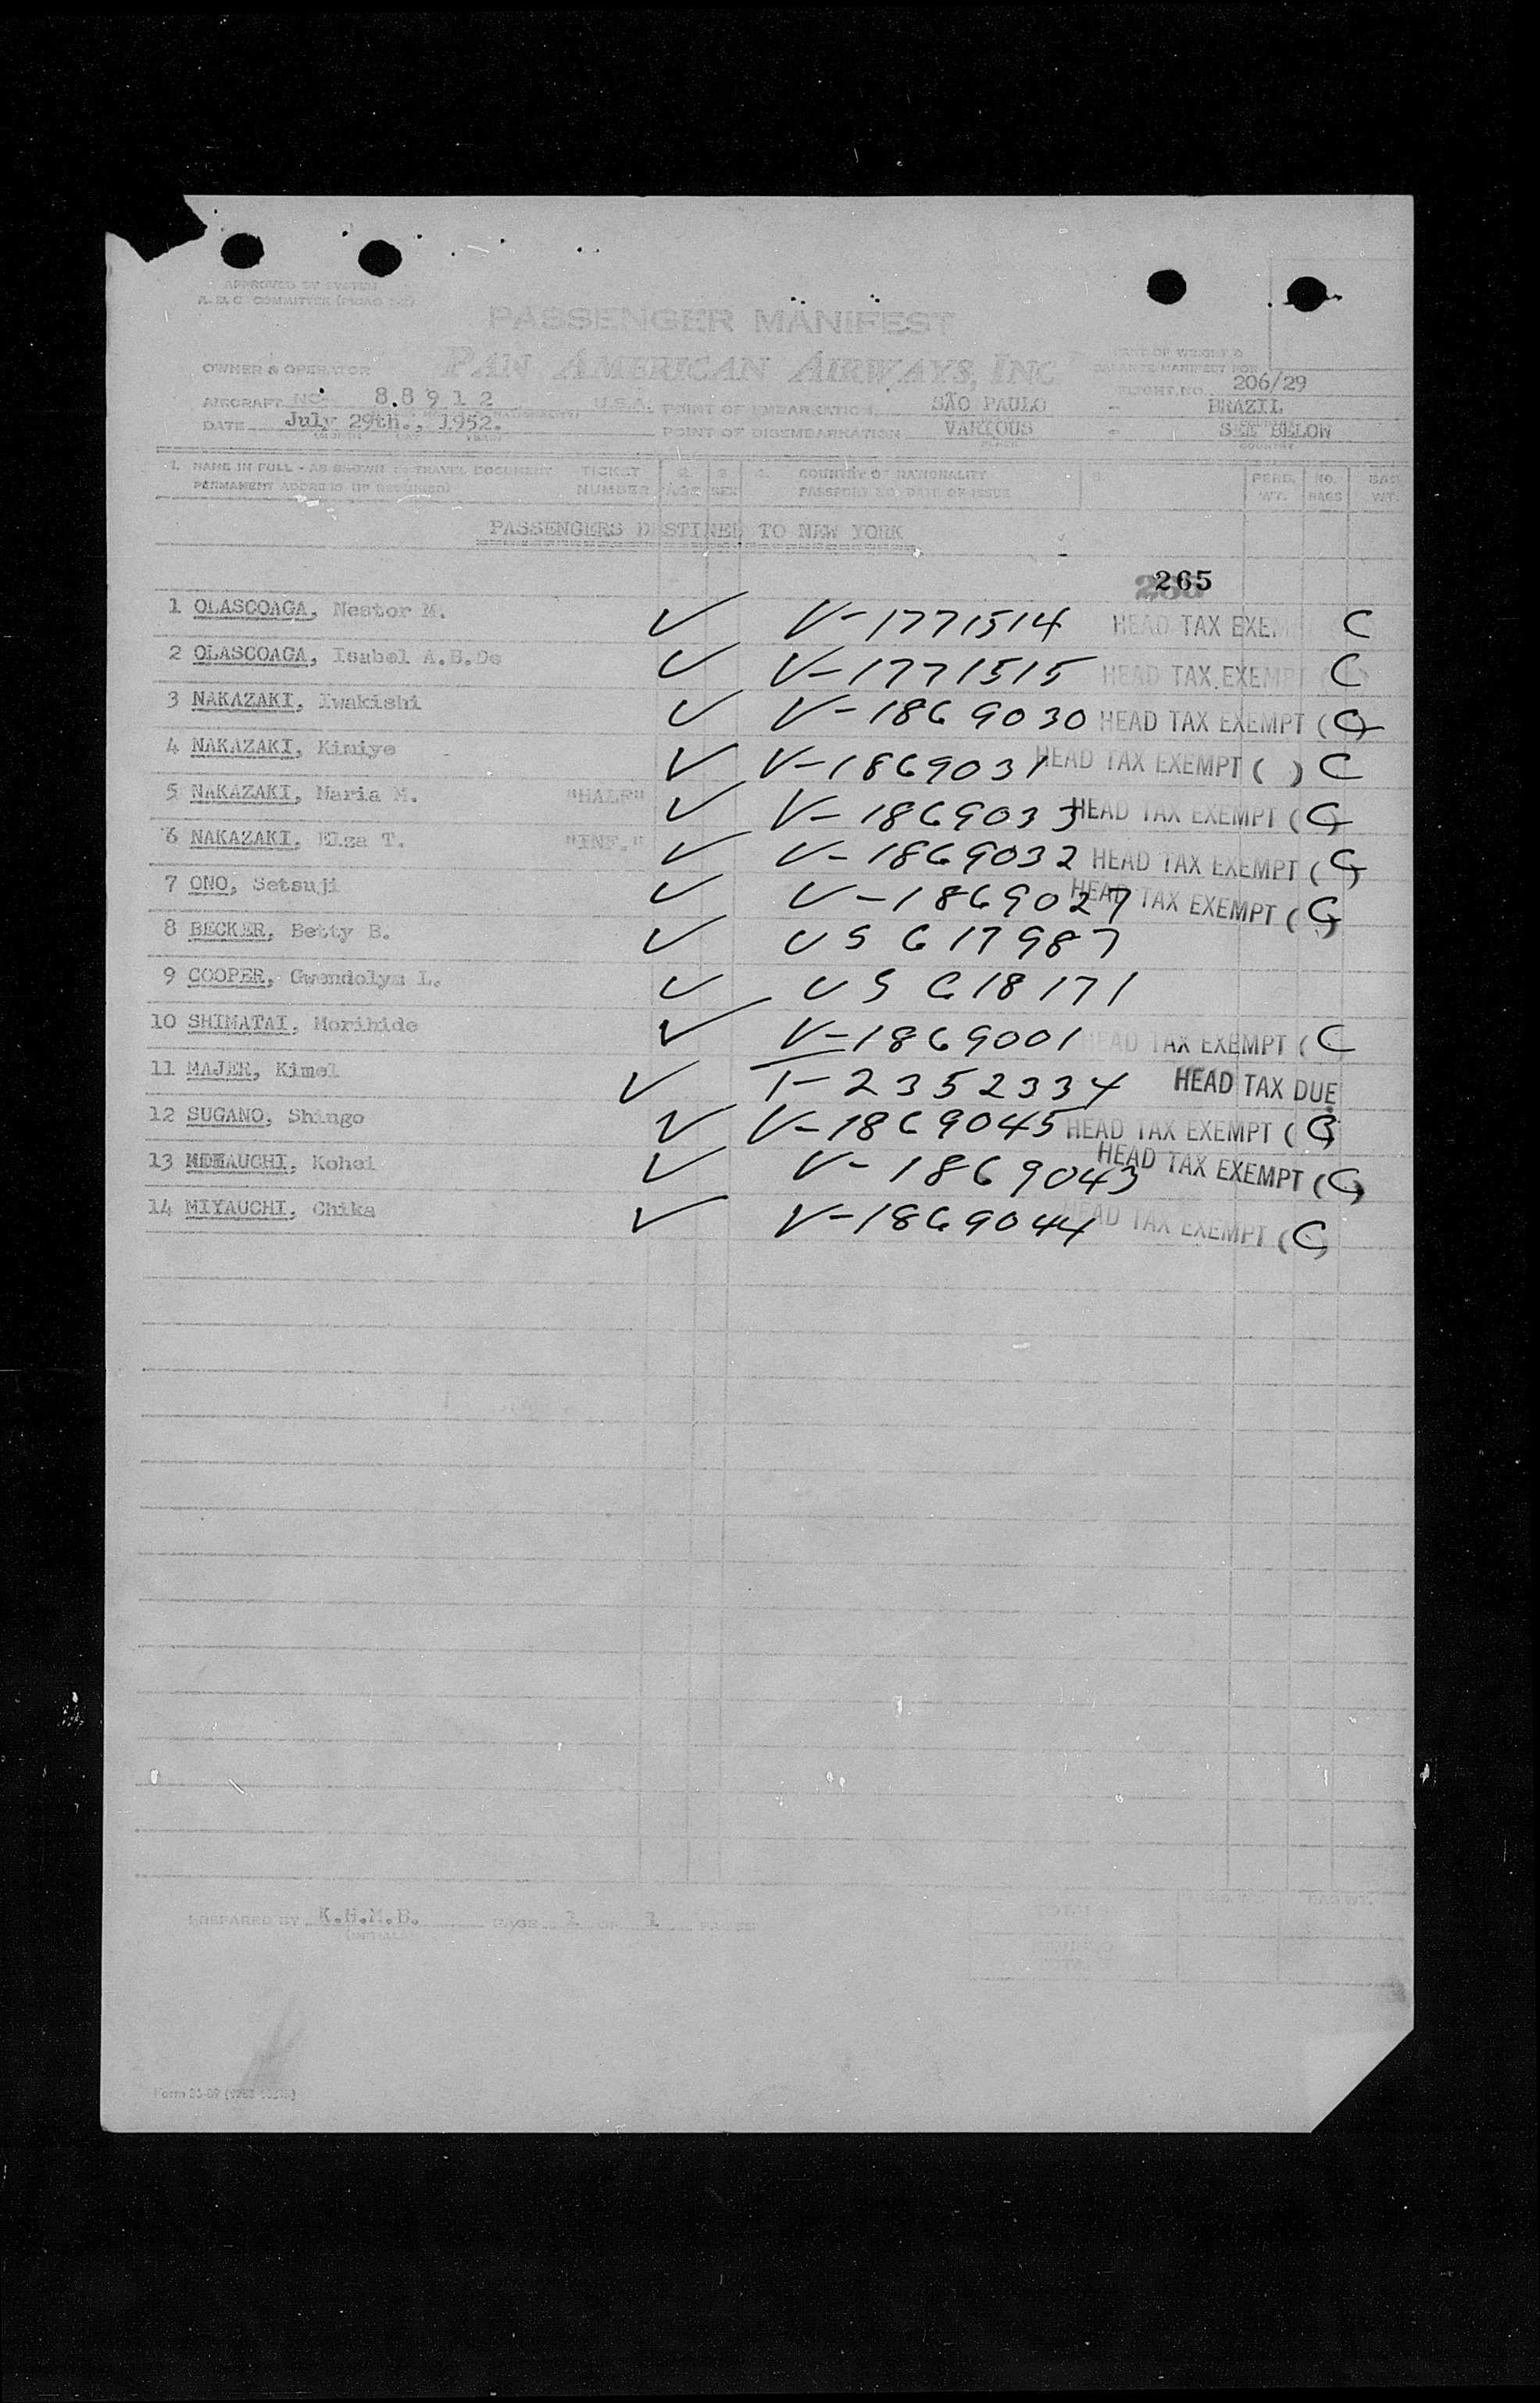 APPROVED BY SYSTEM
PASSENGER MANIFEST
OWNER & OPERATOR PAN AMERICAN AIRWAYS, INC
FLIGHT NO. 206/29
AIRCRAFT NO. 88912 U.S.A. POINT OF EMBARKATION SÃO PAULO - BRAZIL
DATE July 29th., 1952. POINT OF DISEMBARKATION VARIOUS - SEE BELOW
1. NAME IN FULL - AS SHOWN TRAVEL DOCUMENT TICKET 2. 3. 4. COUNTRY OF NATIONALITY 5. PERS. NO. BAG
PERMANENT ADDRESS (IF REQUIRED) NUMBER AGE SEX PASSPORT NO. DATE OF ISSUE WT. BAGS WT.
PASSENGERS DESTINED TO NEW YORK
265
1 OLASCOAGA, Nestor M. ✓ V-1771514 HEAD TAX EXEM C
2 OLASCOAGA, Isabel A.B.De ✓ V-1771515 HEAD TAX EXEMPT (C
3 NAKAZAKI, Iwakishi ✓ V-1869030 HEAD TAX EXEMPT (C)
4 NAKAZAKI, Kimiye ✓ V-1869031 HEAD TAX EXEMPT ( ) C
5 NAKAZAKI, Maria M. "HALF" ✓ V-1869033 HEAD TAX EXEMPT (C)
6 NAKAZAKI, Elza T. "INF." ✓ V-1869032 HEAD TAX EXEMPT (C)
7 ONO, Setsuji ✓ V-1869027 HEAD TAX EXEMPT (C)
8 BECKER, Betty B. ✓ US 617987
9 COOPER, Gwendolyn L. ✓ US 618171
10 SHIMATAI, Morihide ✓ V-1869001 HEAD TAX EXEMPT (C
11 MAJER, Kimel ✓ T-2352334 HEAD TAX DUE
12 SUGANO, Shingo ✓ V-1869045 HEAD TAX EXEMPT (C)
13 Kohei ✓ V-1869043 HEAD TAX EXEMPT (C)
14 MIYAUCHI, Chika ✓ V-1869044 HEAD TAX EXEMPT (C)
PREPARED BY K.H.M.B. PAGE 1 OF 1 PAGES
(INITIALS)